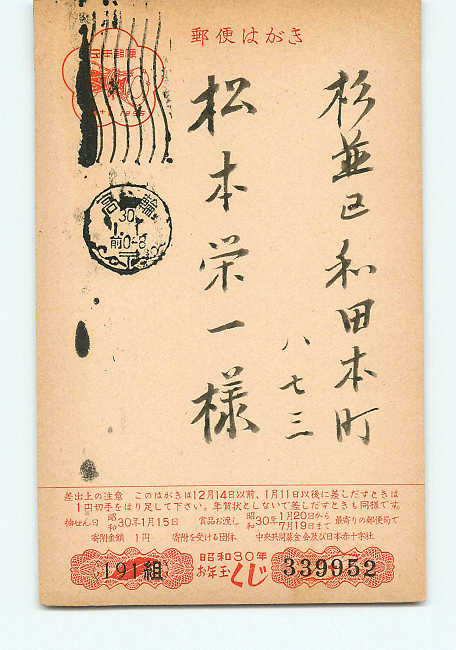 郵便はがき
日本郵便
杉並区和田本町
八七三
松本栄一様
高輪
30
前0-8
差出上の注意 このはがきは12月14日以前、1月11日以後に差しだすときは
1円切手をはり足して下さい。年賀状としないで差しだすときも同様です。
抽せん日 昭和30年1月15日 賞品お渡し 昭和30年1月20日から7月19日まで 最寄りの郵便局で
寄附金額 1円 寄附を受ける団体 中央共同募金会及び日本赤十字社
昭和30年
191組 お年玉くじ 339952